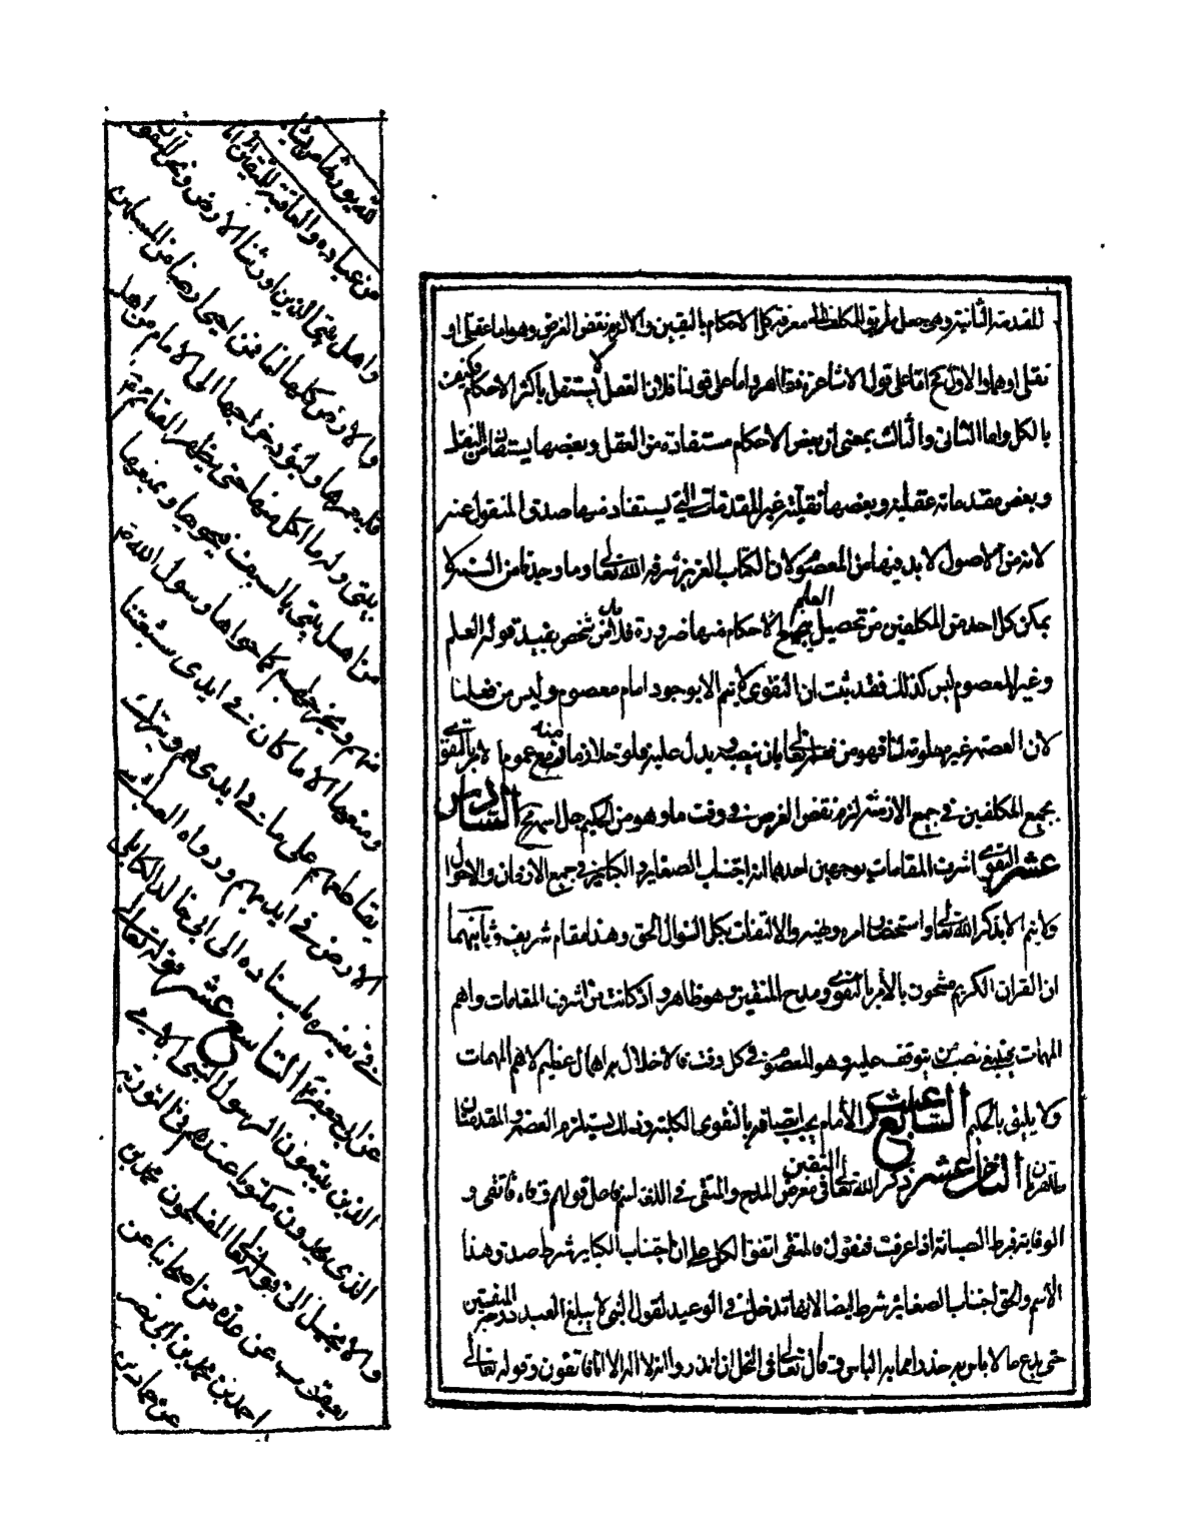 للمقدمة الثانية وهى جعل طريق للمكلف الى معرفة كل الاحكام باليقين والا لزم نقض الغرض وهو اما عقلى او
نقلى او هما والاول مح اما على قول الاشاعرة فظاهر واما على قولنا فلان العقل لا يستقل باكثر الاحكام فكيف
بالكل واما الثانى والثالث بمعنى ان بعض الاحكام مستفادة من العقل وبعضها يستفاد من النقل
وبعض مقدماته عقلية وبعضها نقلية غير المقدمات التى يستفاد منها صدق المنقول عنه
لانه من الاصول لا بد فيها من المعصوم لان الكتاب العزيز شرفه الله تعالى وما وجدناه من السنة لا
يمكن كل احد من المكلفين من تحصيل العلم بجميع الاحكام منها ضرورة فلابد من شخص يفيد قوله العلم
وغير المعصوم ليس كذلك فقد ثبت ان التقوى لا يتم الا بوجود امام معصوم وليس من فعلنا
لان العصمة غير معلومة لنا فهو من فعله تعالى بان ينصبه ويدل عليه فلو خلا زمان منه مع عموم الامر بالتقوى
بجميع المكلفين فى جميع الازمنة لزم نقض الغرض فى وقت ما وهو من الحكيم جل اسمه مح السادس
عشر التقوى اشرف المقامات بوجهين احدهما انه اجتناب الصغاير والكباير فى جميع الازمان والاحوال
ولا يتم الا بذكر الله تعالى واستحضار امره ونهيه والالتفات بكل السؤال الحق وهذا مقام شريف وثانيهما
ان القران الكريم مشحون بالامر بالتقوى ومدح المتقين وهو ظاهر واذ كانت من اشرف المقامات واهم
المهمات نصب من يتوقف عليه وهو المعصوم فى كل وقت فالاخلال به اهمال عظيم لاهم المهمات
ولا يليق بالحكيم السابع عشر الامام يجب اتصافه بالتقوى الكلية وذلك يستلزم العصمة والمقدمتان
ظاهرتان الثامن عشر ذكر الله تعالى المتقين فى معرض المدح والمتقى فى اللغة اسم فاعل من قولهم وقاه فاتقى و
الوقاية فرط الصيانة اذا عرفت فنقول فالمتقى اتفق الكل على ان اجتناب الكباير شرط صدق هذا
الاسم والحق اجتناب الصغاير شرط ايضا لانها تدخل فى الوعيد لقول النبى لا يبلغ العبد درجة المتقين
حتى يدع ما لا باس به حذرا مما به الباس وقال تعالى فى النحل ان انذروا انه لا اله الا انا فاتقون وقوله تعالى
لله يورثها من يشاء
من عباده والعاقبة للمتقين انا
واهل بيتى الذين اورثنا الارض ونحن المتقون
والارض كلها لنا فمن احيى ارضا من المسلمين
فليعمرها وليؤد خراجها الى الامام من اهل
بيتى وله ما اكل منها حتى يظهر القائم
من اهل بيتى بالسيف فيحويها ويمنعها
منهم ويخرجهم كما حواها رسول الله
ومنعها الا ما كان فى ايدى شيعتنا
يقاطعهم على ما فى ايديهم ويترك
الارض فى ايديهم ورواه العياشى
فى تفسيره باسناده الى ابى خالد الكابلى
عن ابى جعفر التاسع عشر قوله تعالى
الذين يتبعون الرسول النبى الامى
الذى يجدونه مكتوبا عندهم فى التورية
والانجيل الى قوله تعالى المفلحون محمد بن
يعقوب عن عدة من اصحابنا عن
احمد بن محمد بن ابى نصر
عن حماد بن